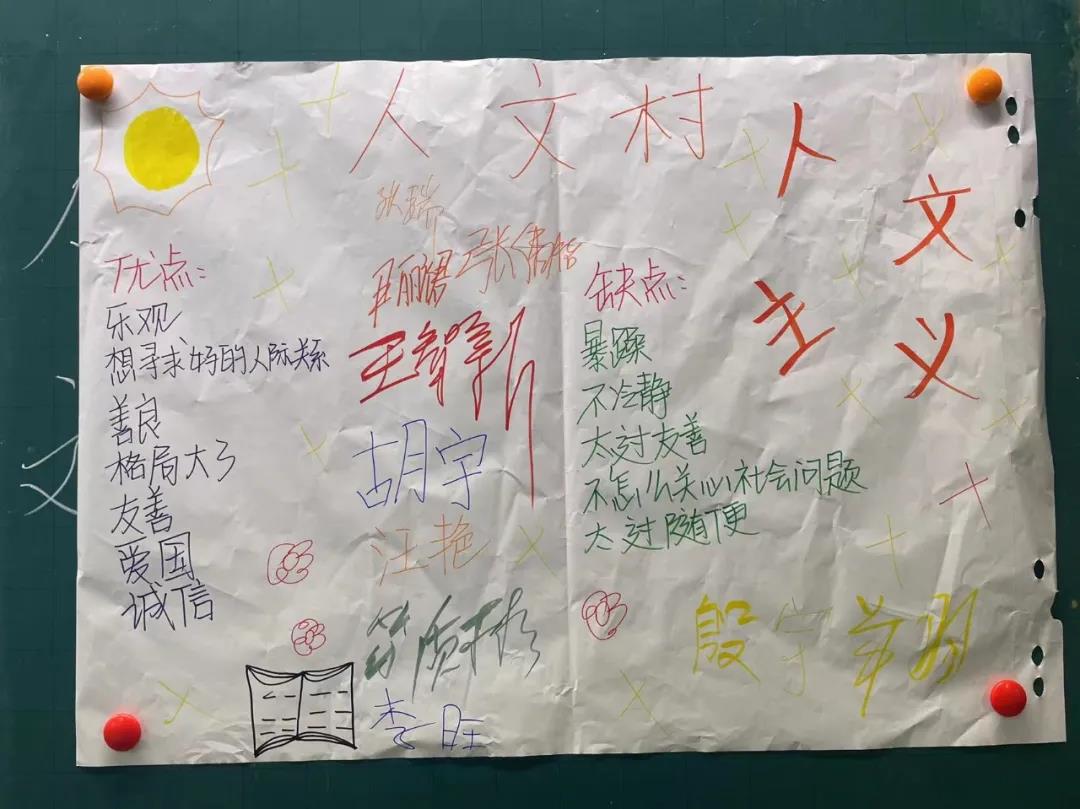 人文村
人文主义
张瑞
优点：
乐观
想寻求好的人际关系
善良
格局大了
友善
爱国
诚信
胡宇
汪艳
李旺
缺点：
暴躁
不冷静
太过友善
不怎么关心社会问题
太过随便
殷宇
人
文